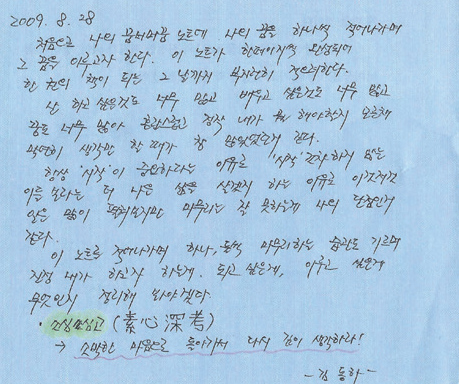 2009. 8. 28
처음으로 나의 꿈버퍼꿈 노트에 나의 꿈을 하나씩 적어나가며
그 꿈을 이루고자 한다. 이 노트가 한페이지씩 완성되어
한 권의 책이 되는 그 날까지 부지런히 적으리란다.
난 하고 싶은것도 너무 많고 배우고 싶은것도 너무 많고
꿈도 너무 많아 혼란스럽고 정작 내가 뭘 해야할지 모른채
막연히 생각만 할 때가 참 많았던것 같다.
항상 '시작'이 중요하다는 이유로 '시작'조차 하지 않는
이들 보다는 더 나은 삶을 살겠지 하는 이유로 이것저것
많이 펼쳐보지만 마무리는 잘 못하는게 나의 단점인거
같다.
이 노트를 적어나가며 하나, 둘씩 마무리하는 습관도 기르며
진정 내가 하고자 하는게, 되고 싶은게, 이루고 싶은게
무엇인지 정리해 봐야겠다.
· 소심심고 (素心深考)
→ 소박한 마음으로 돌아가서 다시 깊이 생각하라!
- 김동하 -